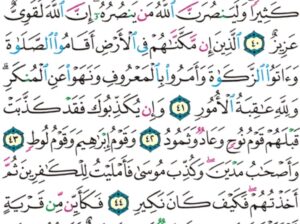 كَثِيرًا ۗ وَلَيَنصُرَنَّ ٱللَّهُ مَن يَنصُرُهُۥٓ ۗ إِنَّ ٱللَّهَ لَقَوِىٌّ
عَزِيزٌ ٤٠ ٱلَّذِينَ إِن مَّكَّنَّـٰهُمْ فِى ٱلْأَرْضِ أَقَامُوا۟ ٱلصَّلَوٰةَ
وَءَاتَوُا۟ ٱلزَّكَوٰةَ وَأَمَرُوا۟ بِٱلْمَعْرُوفِ وَنَهَوْا۟ عَنِ ٱلْمُنكَرِ ۗ
وَلِلَّهِ عَـٰقِبَةُ ٱلْأُمُورِ ٤١ وَإِن يُكَذِّبُوكَ فَقَدْ كَذَّبَتْ
قَبْلَهُمْ قَوْمُ نُوحٍ وَعَادٌ وَثَمُودُ ٤٢ وَقَوْمُ إِبْرَٰهِيمَ وَقَوْمُ لُوطٍ ٤٣
وَأَصْحَـٰبُ مَدْيَنَ ۖ وَكُذِّبَ مُوسَىٰ فَأَمْلَيْتُ لِلْكَـٰفِرِينَ ثُمَّ
أَخَذْتُهُمْ ۖ فَكَيْفَ كَانَ نَكِيرِ ٤٤ فَكَأَيِّن مِّن قَرْيَةٍ